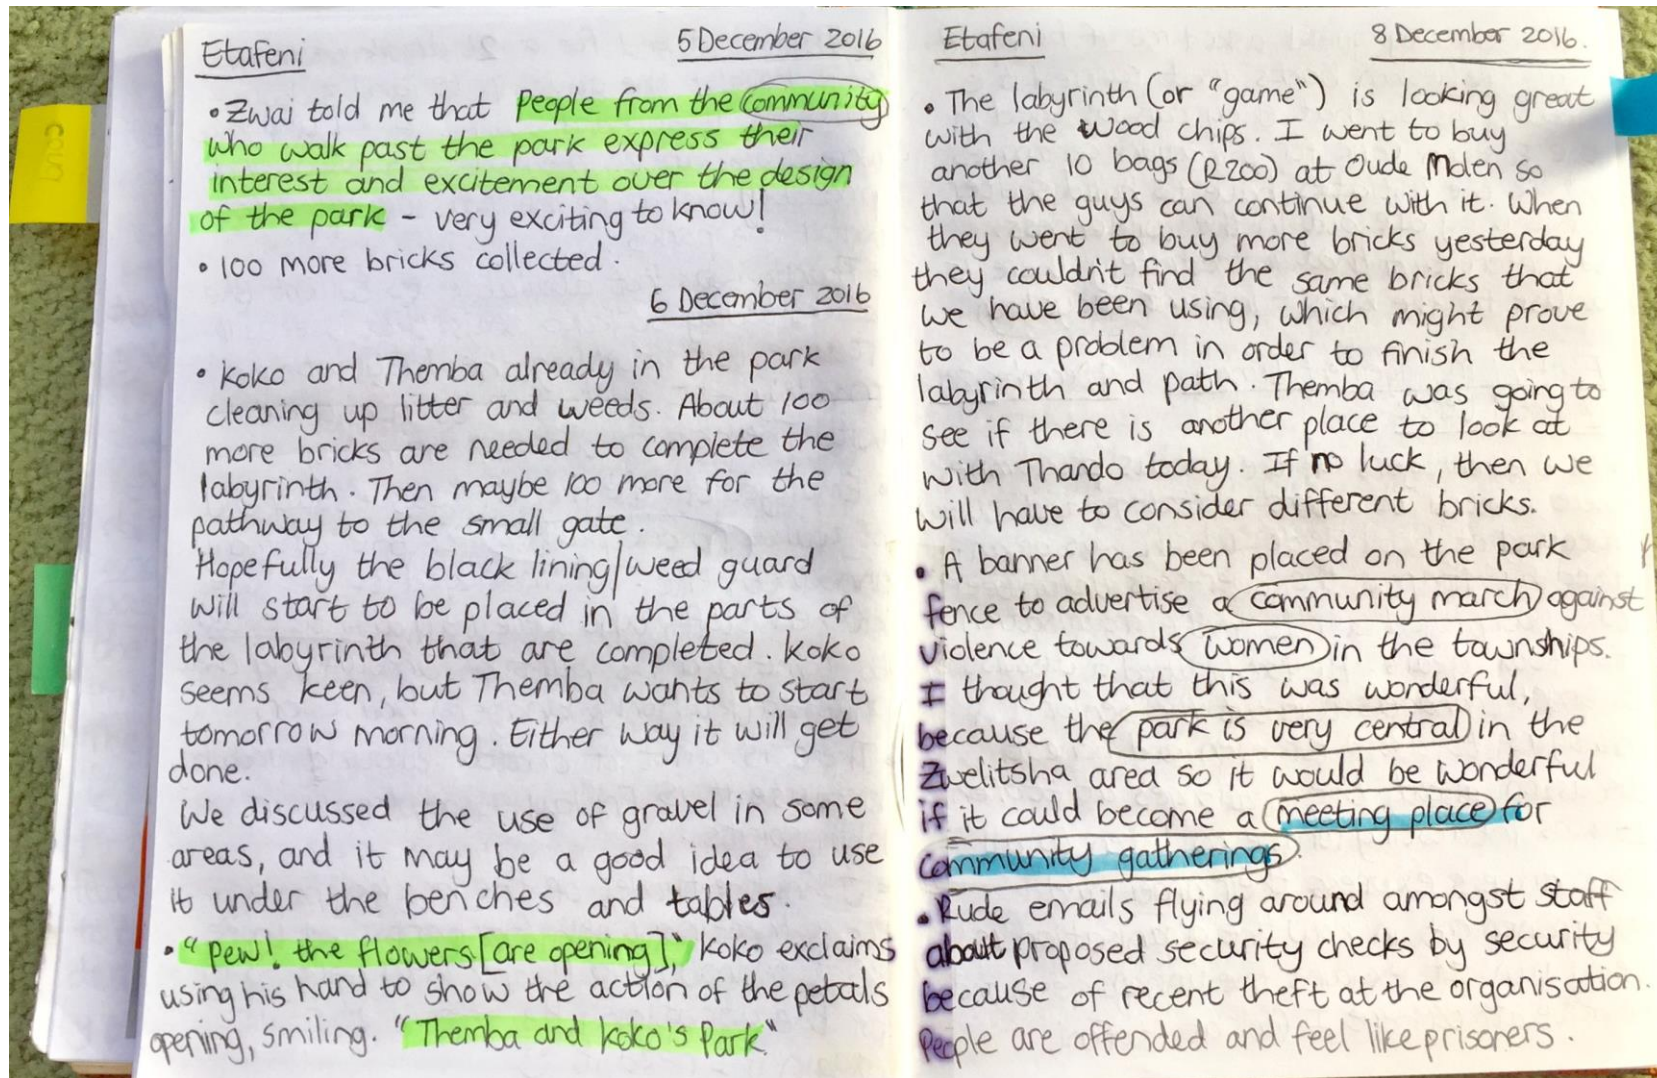 Etafeni 5 December 2016
• Zwai told me that People from the community
who walk past the park express their
interest and excitement over the design
of the park - very exciting to know!
• 100 more bricks collected.
6 December 2016
• Koko and Themba already in the park
cleaning up litter and weeds. About 100
more bricks are needed to complete the
labyrinth. Then maybe 100 more for the
pathway to the small gate.
Hopefully the black lining/weed guard
will start to be placed in the parts of
the labyrinth that are completed. Koko
seems keen, but Themba wants to start
tomorrow morning. Either way it will get
done.
We discussed the use of gravel in some
areas, and it may be a good idea to use
it under the benches and tables.
• "Pew! the flowers [are opening]," Koko exclaims
using his hand to show the action of the petals
opening, smiling. "Themba and Koko's Park"
Etafeni 8 December 2016.
• The labyrinth (or "game") is looking great
with the wood chips. I went to buy
another 10 bags (R200) at Oude Molen so
that the guys can continue with it. When
they went to buy more bricks yesterday
they couldn't find the same bricks that
we have been using, which might prove
to be a problem in order to finish the
labyrinth and path. Themba was going to
see if there is another place to look at
with Thando today. If no luck, then we
will have to consider different bricks.
• A banner has been placed on the park
fence to advertise a community march against
violence towards women in the townships.
I thought that this was wonderful,
because the park is very central in the
Zwelitsha area so it would be wonderful
if it could become a meeting place for
community gatherings.
• Rude emails flying around amongst staff
about proposed security checks by security
because of recent theft at the organisation.
People are offended and feel like prisoners.